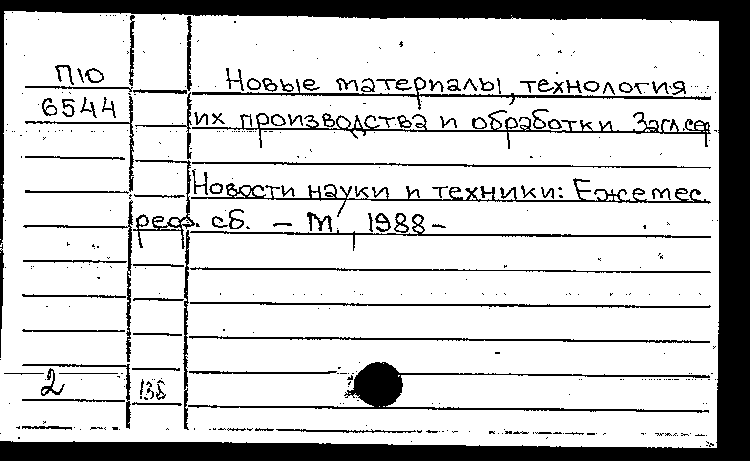 П10
6544
Новые материалы, технология
их производства и обработки. Загл. сер.
Новости науки и техники: Ежемес.
реф. сб. – М., 1988–
2
138